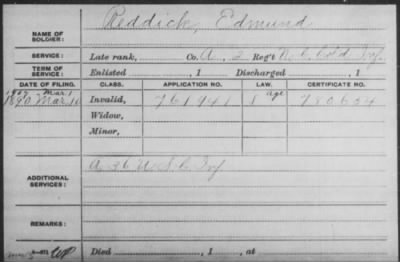 Reddick, Edmund
NAME OF SOLDIER:
SERVICE: Late rank, Co. A, 2 Reg't N.C. Cold Inf.
TERM OF SERVICE: Enlisted , 1 Discharged , 1
DATE OF FILING. CLASS. APPLICATION NO. LAW. CERTIFICATE NO.
Mar. 1
1890 Mar. 10 Invalid, 761941 8 age 780634
Widow,
Minor,
ADDITIONAL SERVICES: A 36 U.S.C. Inf
REMARKS:
Died , 1 , at